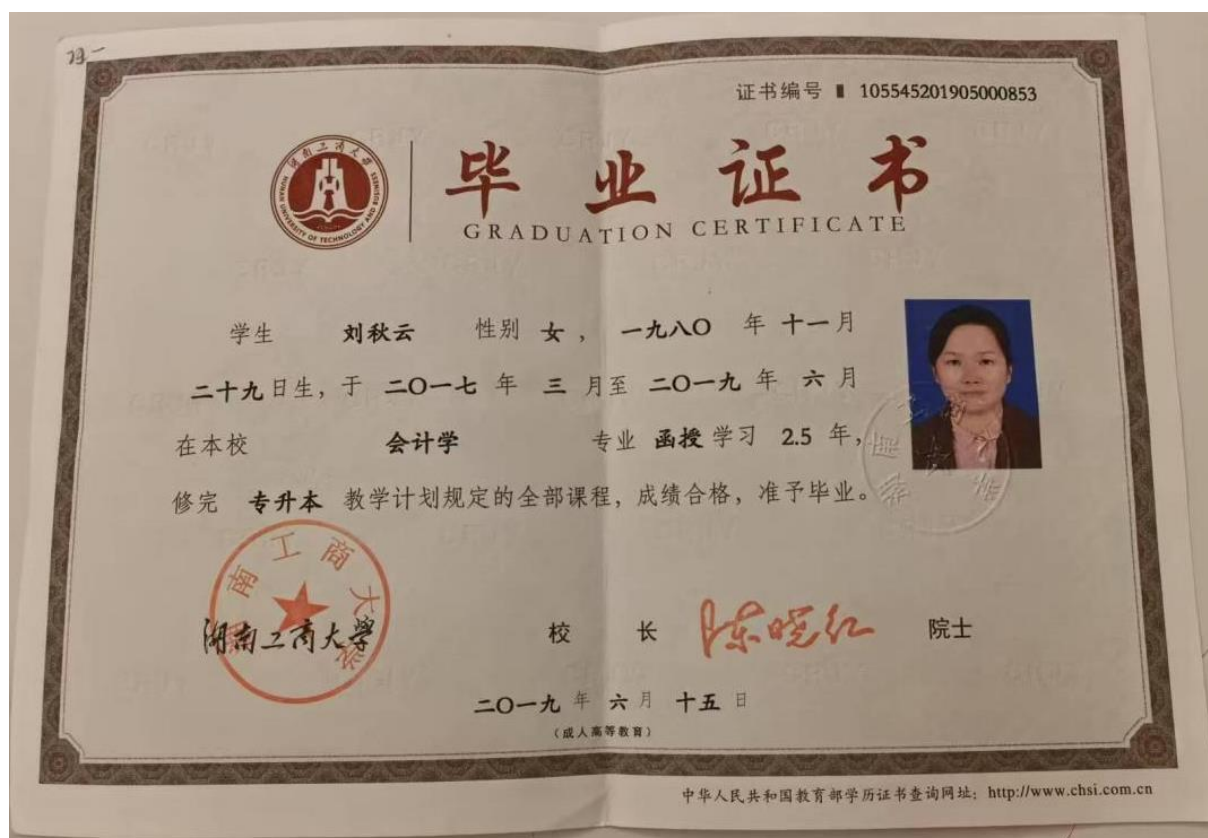 证书编号 105545201905000853
湖南工商大学
HUNAN UNIVERSITY OF TECHNOLOGY AND BUSINESS
毕业证书
GRADUATION CERTIFICATE
学生 刘秋云 性别 女，一九八〇 年 十一月
二十九日生，于 二〇一七 年 三 月至 二〇一九 年 六 月
在本校 会计学 专业 函授 学习 2.5 年，
修完 专升本 教学计划规定的全部课程，成绩合格，准予毕业。
湖南工商大学
湖南工商大學 校 长 陈晓红 院士
二〇一九 年 六 月 十五 日
（成人高等教育）
中华人民共和国教育部学历证书查询网址：http://www.chsi.com.cn